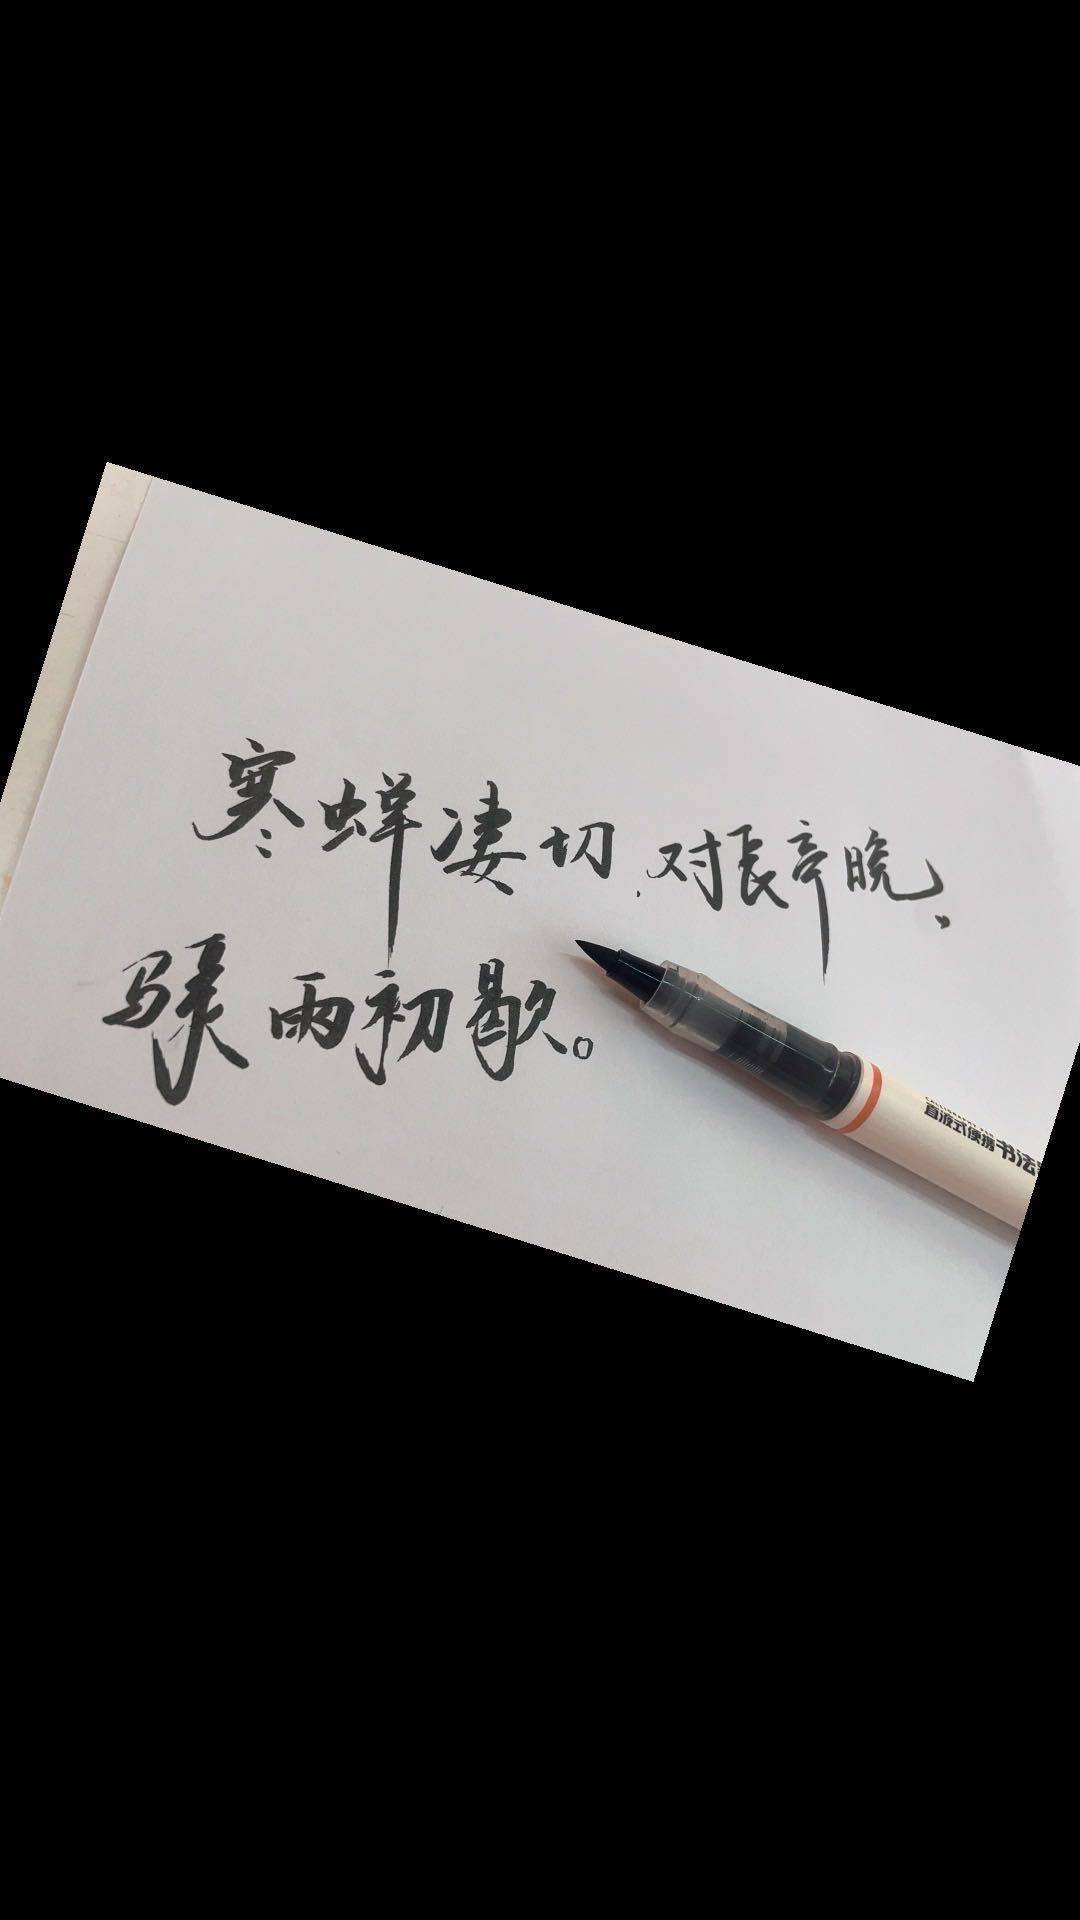 寒蝉凄切,对长亭晚,
骤雨初歇。
直液式便携书法